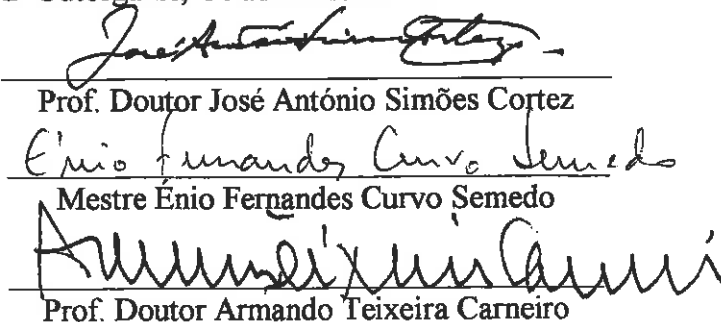 José António Simões Cortez
Prof. Doutor José António Simões Cortez
Énio Fernandes Curvo Semedo
Mestre Énio Fernandes Curvo Semedo
Armando Teixeira Carneiro
Prof. Doutor Armando Teixeira Carneiro